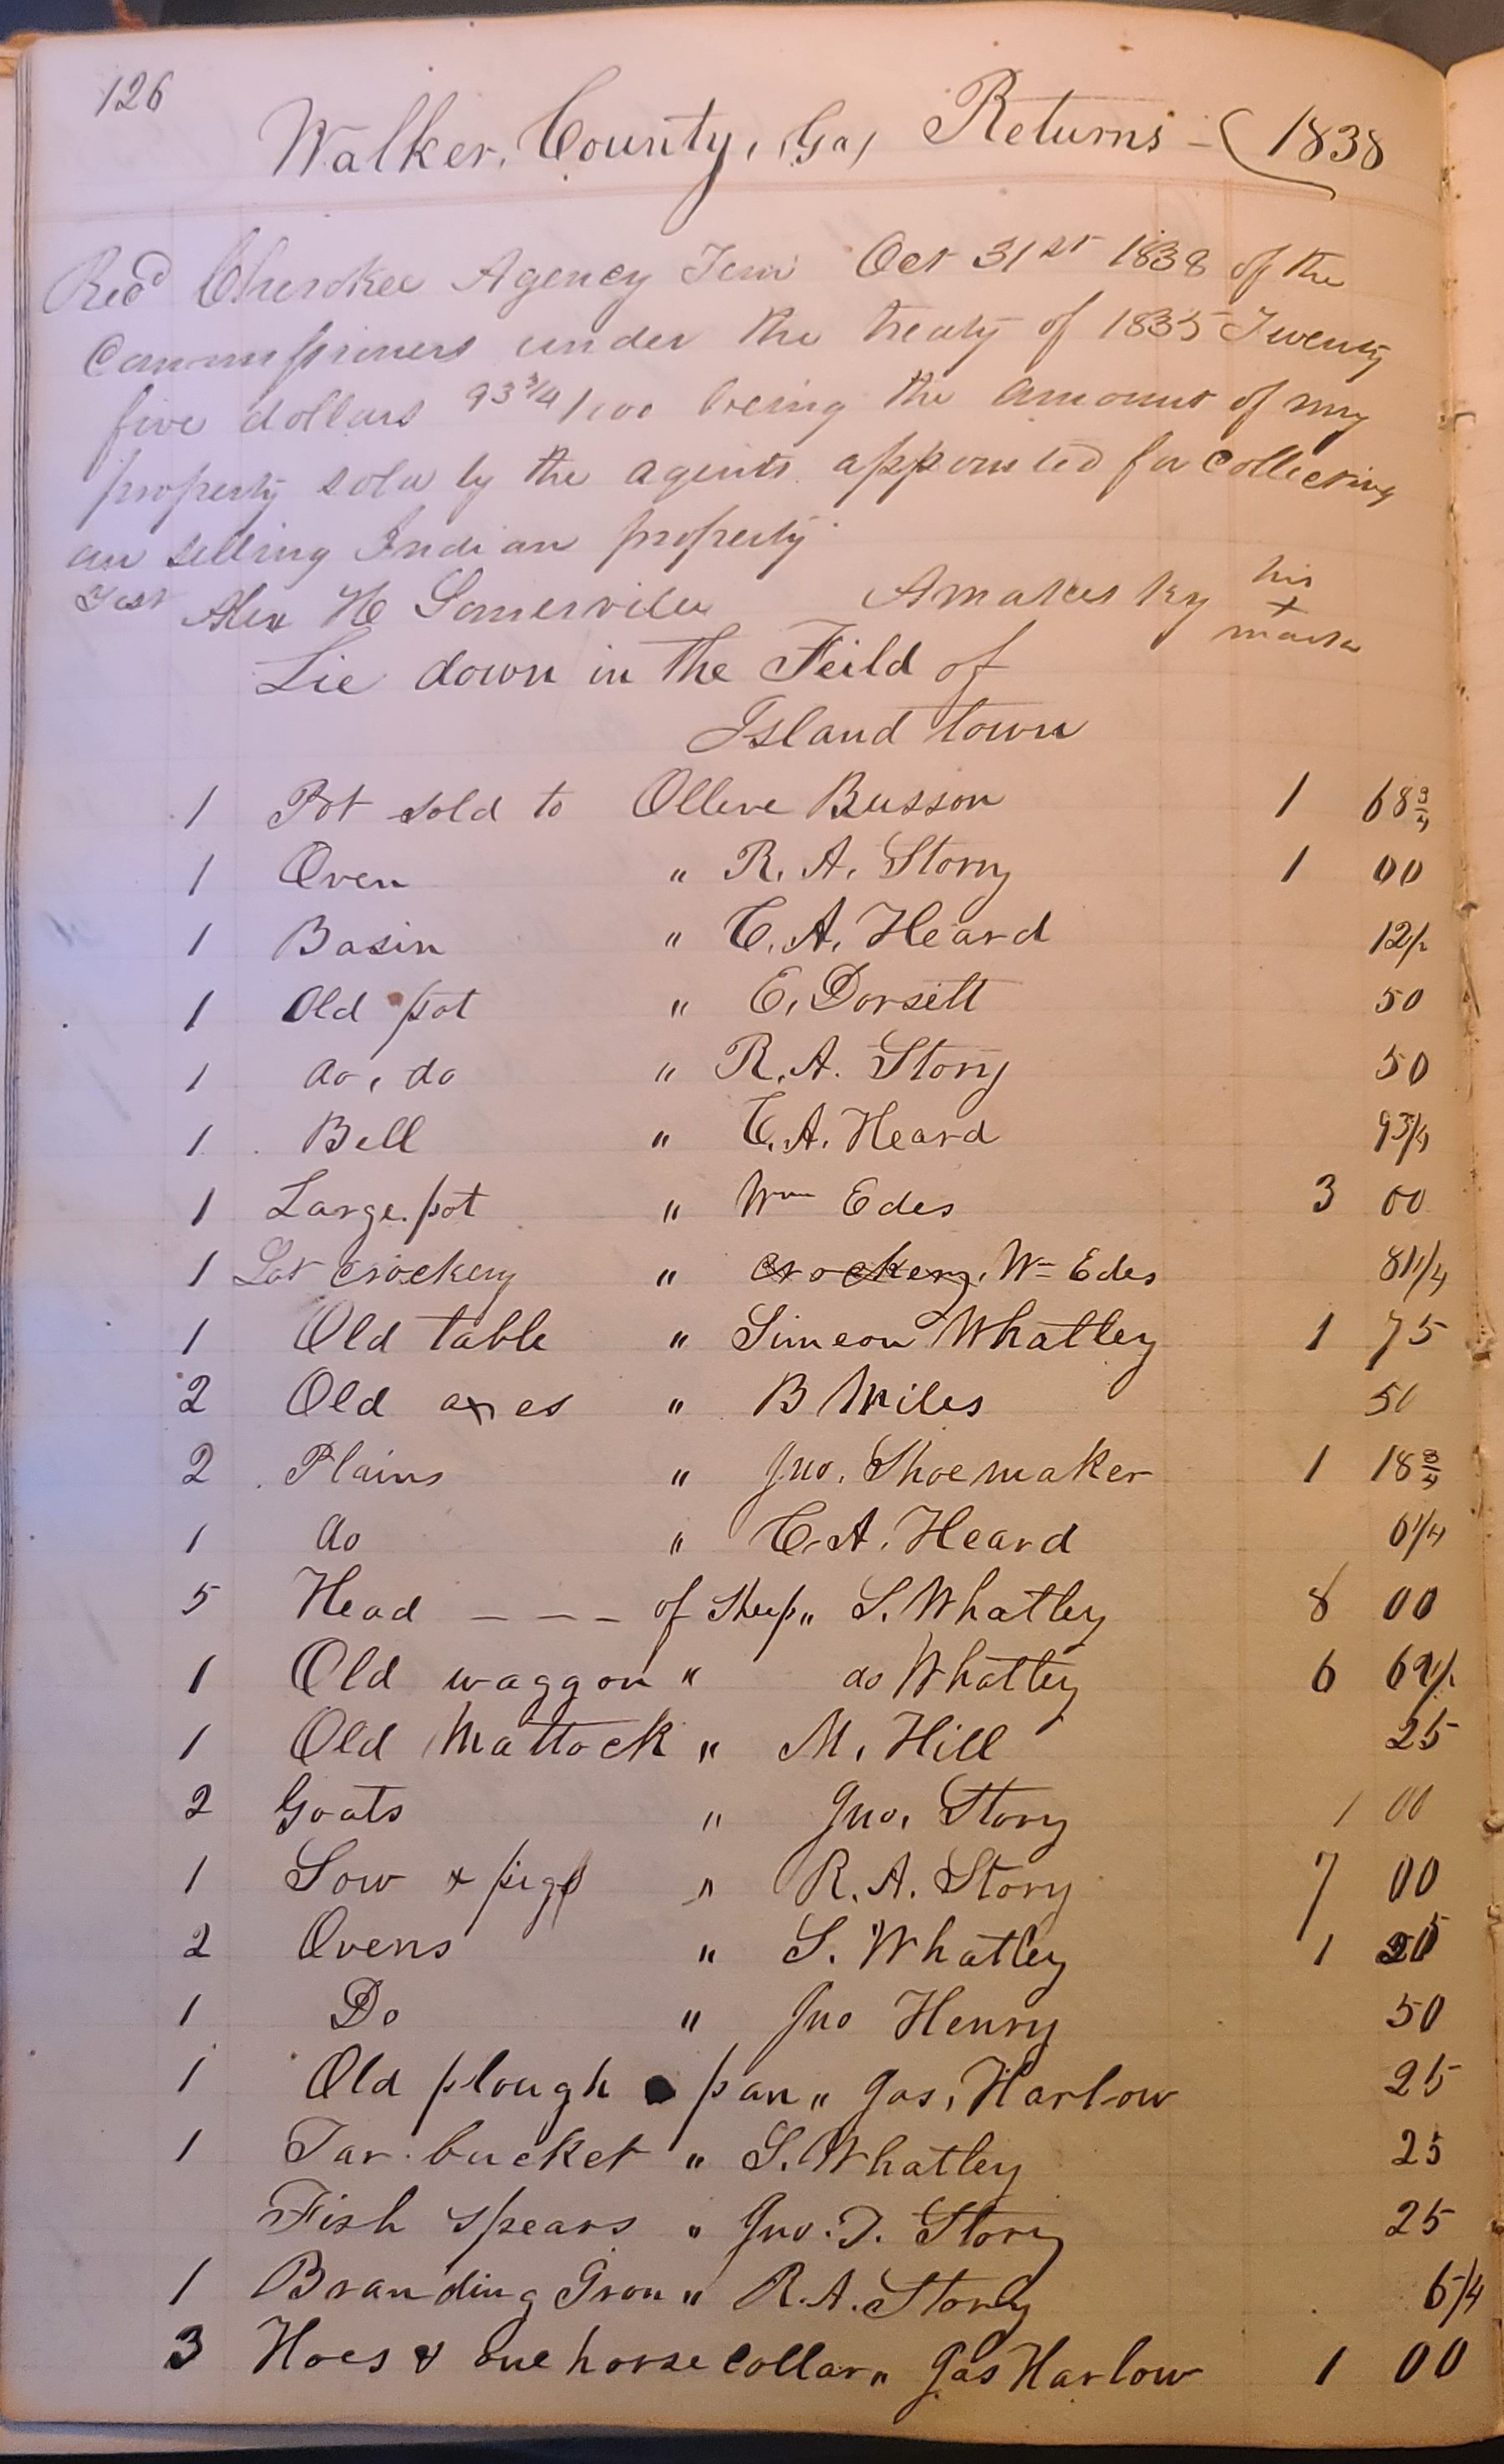 126
Walker, County, (Ga) Returns - ( 1838
Recd Cherokee Agency Tenn Oct 31st 1838 of the
Commissioners under the treaty of 1835 Twenty
five dollars 93 3/4/100 being the amount of my
property sold by the agents appointed for Collecting
an selling Indian property
Test Alex H Somerville Amateeskey his
x
mark
Lie down in the Feild of
Island town
1 Pot sold to Olleve Busson 1 68 3/4
1 Oven " R. A. Story 1 00
1 Basin " C. A. Heard 12 1/2
1 Old pot " E. Dorsett 50
1 do, do " R. A. Story 50
1 Bell " C. A. Heard 93/4
1 Large pot " Wm Edes 3 00
1 Lot crockery " crockery. Wm Edes 81 1/4
1 Old table " Simeon Whatley 1 75
2 Old axes " B Miles 50
2 Plains " Jno. Shoemaker 1 18 3/4
1 do " C. A. Heard 6 1/4
5 Head - - - of Sheep " S. Whatley 8 00
1 Old waggon " do Whatley 6 62 1/2
1 Old Mattock " M. Hill 25
2 Goats " Jno. Story 1 00
1 Sow & pigs " R. A. Story 7 00
2 Ovens " S. Whatley 1
1 Do " Jno Henry 50
1 Old plough pan " Jas. Harlow 25
1 Tar bucket " S. Whatley 25
Fish spears " Jno. T. Story 25
1 Branding Iron " R. A. Story 6/4
3 Hoes & one horse collar " Jas Harlow 1 00